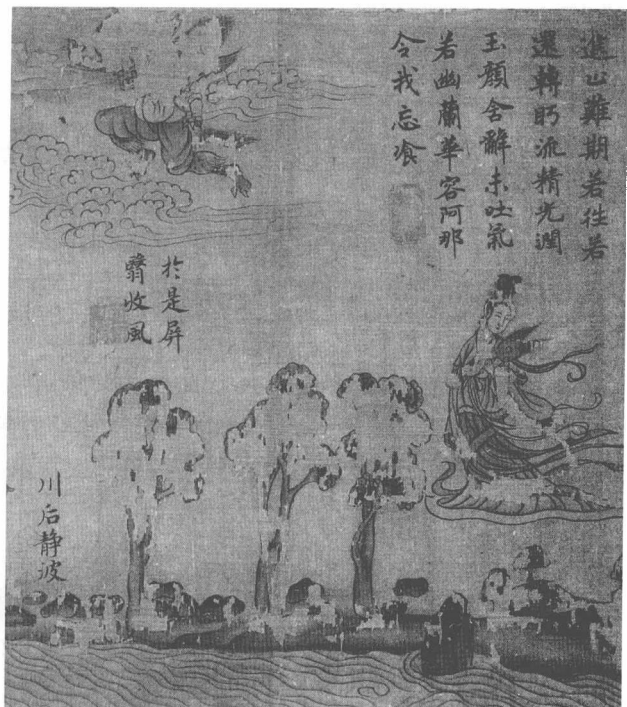 進止難期若往若
還轉眄流精光潤
玉顏含辭未吐氣
若幽蘭華容阿那
令我忘湌
於是屏
翳收風
川后靜波